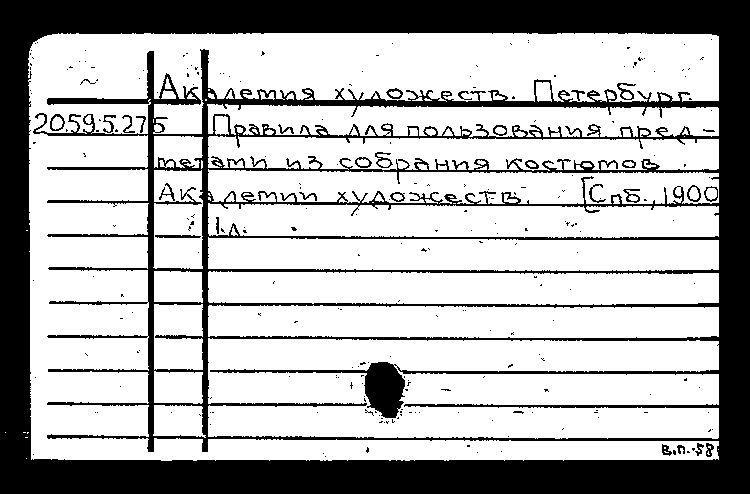 Академия художеств. Петербург.
20.59.5.275 Правила для пользования пред-
метами из собрания костюмов
Академии художеств. [Спб., 1900]
1 л.
в.п.-58